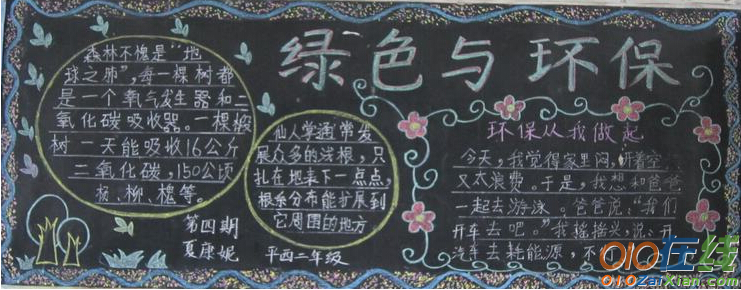 绿色与环保
森林不愧是“地
球之肺”,每一棵树都
是一个氧气发生器和二
氧化碳吸收器。一棵椴
树一天能吸收16公斤
二氧化碳,150公顷
杨、柳、槐等。
第四期
夏康妮
仙人掌通常发
展众多的浅根,只
扎在地表下一点点,
根系分布能扩展到
它周围的地方
平西二年级
环保从我做起
今天,我觉得家里闷,开着空
又太浪费。于是,我想和爸爸
一起去游泳。爸爸说:“我们
开车去吧。”我摇摇头,说:开
汽车去耗能源,不
010在线
010ZaiXian.com